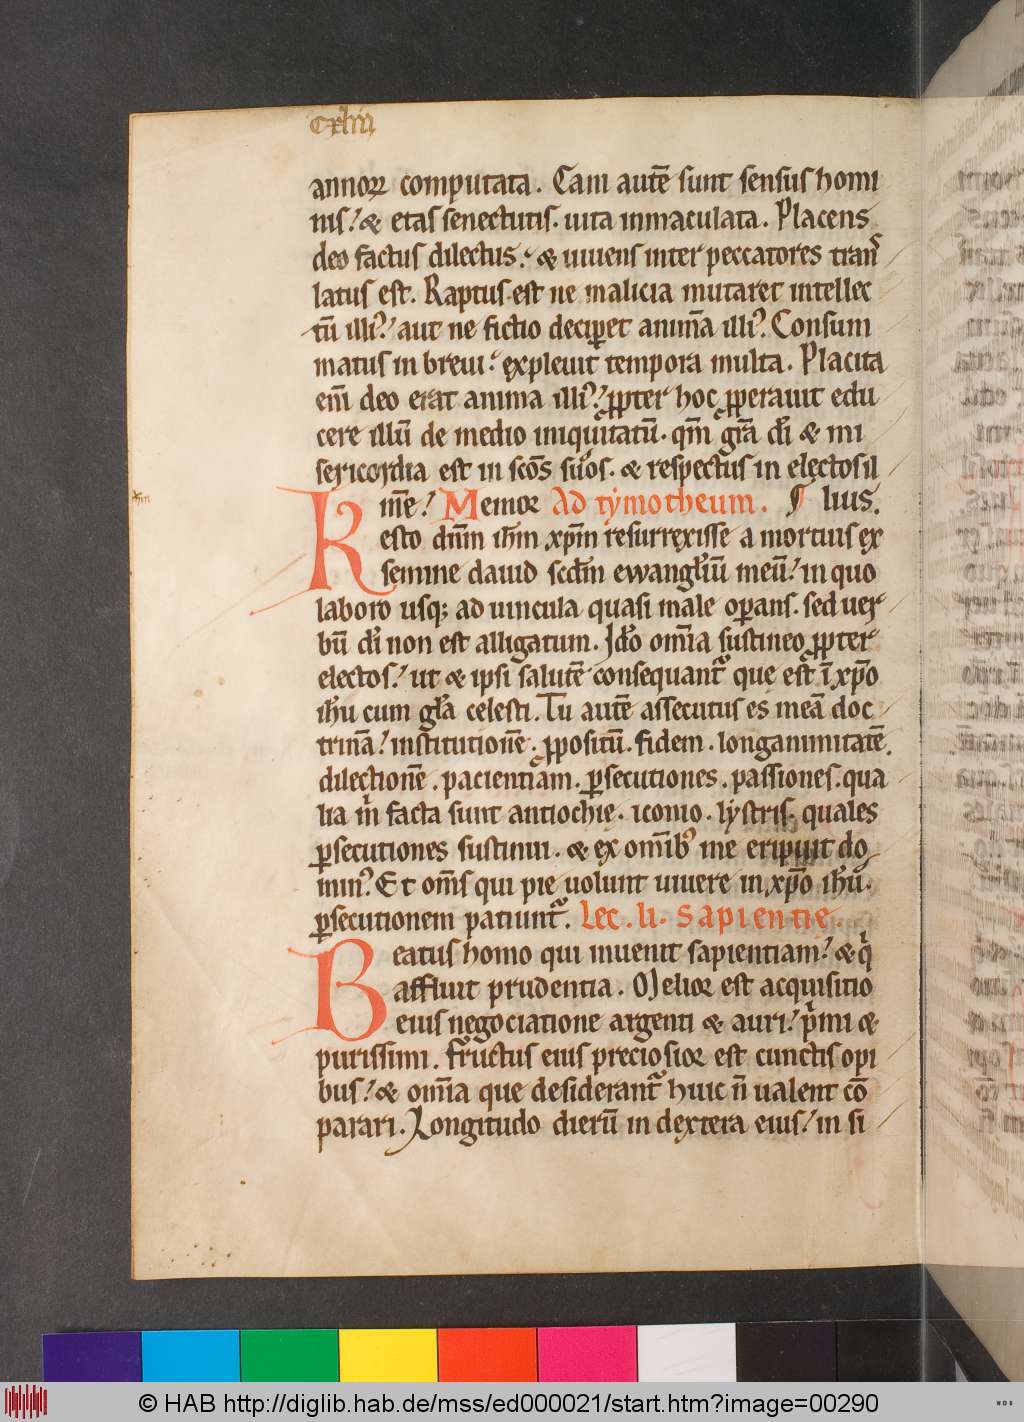 cxliiii
annoꝝ computata. Cani autē sunt sensus homi
nis! & etas senectutis. uita inmaculata. Placens
deo factus dilectus! & uiuens inter peccatores trans
latus est. Raptus est ne malicia mutaret intellec
tū illi᾿! aut ne fictio deciꝑet animā illi᾿. Consum
matus in breui! expleuit tempora multa. Placita
enī deo erat anima illi᾿! ꝓpter hoc ꝓperauit edu
cere illū de medio iniquitatū. qm̄ grā dī & mi
sericordia est in scōs suos. & respectus in electos il
Rīne! Memor Ad tymotheum. ¶ lius.
esto dnm̄ ihm̄ xp̄m resurrexisse a mortuis ex
semine dauid scdm̄ ewangliū meū! in quo
laboro usqꝫ ad uincula quasi male oꝑans. sed uer
bū dī non est alligatum. Ido omīa sustineo ꝓpter
electos! ut & ipsi salutē consequant᷑ que est ī xp̄o
ihū cum glā celesti. Tu autē assecutus es meā doc
trinā! institutionē. ꝓpositū. fidem. longanimitatē.
dilectionē. pacientiam. ꝑsecutiones. passiones. qua
lia m̄ facta sunt antiochie. iconio. lystris. quales
ꝑsecutiones sustinui. & ex omībꝰ me eripuit do
minꝰ. Et om̄s qui pie uolunt uiuere in xp̄o ihū.
ꝑsecutionem patiunt᷑. Lec. li. Sapientie.
Beatus homo qui inuenit sapientiam! & q̄
affluit prudentia. Melior est acquisitio
eius negociatione argenti & auri! p̄mi &
purissimi. Fructus eius preciosior est cunctis opi
bus! & omīa que desiderant᷑ huic n̄ ualent cō
parari. Longitudo dierū in dextera eius! in si
© HAB http://diglib.hab.de/mss/ed000021/start.htm?image=00290